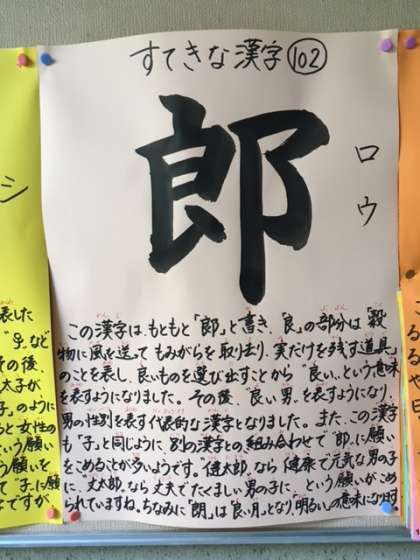 すてきな漢字 102
郎
ロウ
この漢字は、もともと「郎」と書き、「良」の部分は「穀
物に風を送ってもみがらを取り去り、実だけを残す道具」
のことを表し、良いものを選び出すことから「良い」という意味
を表すようになりました。その後、「良い男」を表すようになり、
男の性別を表す代表的な漢字となりました。また、この漢字
も「子」と同じように、別の漢字との組み合わせで「郎」に願い
をこめることが多いようです。「健太郎」なら「健康で元気な男の子
に」、「丈太郎」なら「丈夫でたくましい男の子に」という願いがこめ
られていますね。ちなみに「朗」は「良い月」となり「明るい」の意味になります。
シ
表した
「子」など
その後、
太子が
子」のように
ると女性の
いう願い
う願いを
て「子」に願い
ですが、